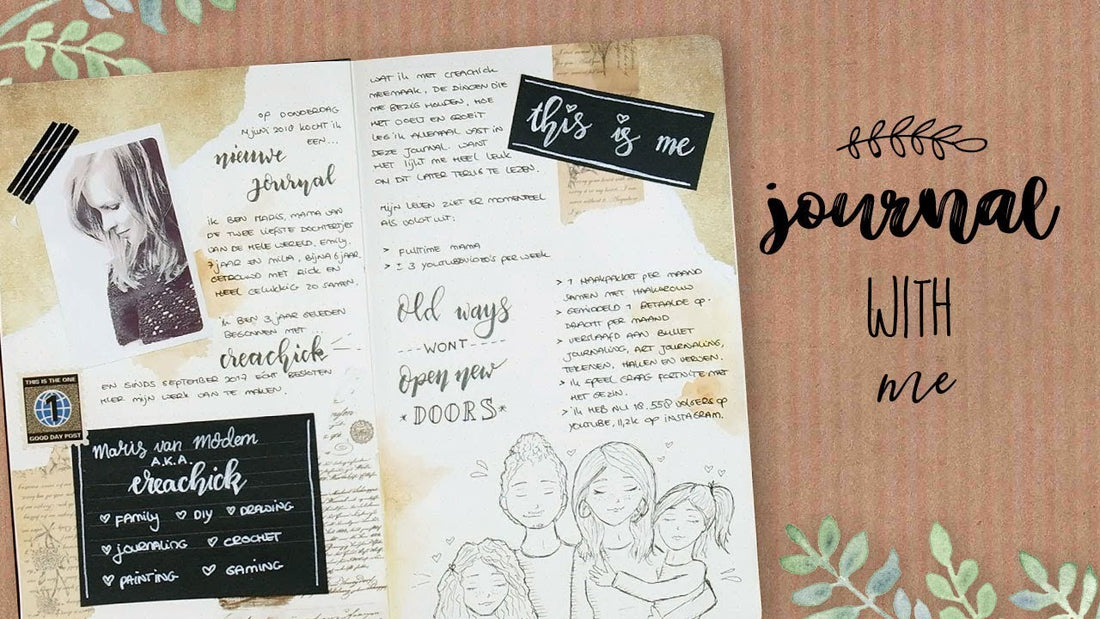 OP DONDERDAG
JUNI 2018 KOCHT IK
EEN...
nieuwe
journal
IK BEN MARIS, MAMA VAN
DE TWEE LIEFSTE DOCHTERTJES
VAN DE HELE WERELD. EMILY,
7 JAAR EN MILIA, BIJNA 6 JAAR.
GETROUWD MET RICK EN
HEEL GELUKKIG ZO SAMEN.
IK BEN 3 JAAR GELEDEN
BEGONNEN MET ...
creachick
EN SINDS SEPTEMBER 2017 ECHT BESLOTEN
HIER MIJN WERK VAN TE MAKEN.
THIS IS THE ONE
1
GOOD DAY POST
Maris van Modem
A.K.A.
creachick
FAMILY DIY DRAWING
JOURNALING CROCHET
PAINTING GAMING
WAT IK MET CREACHICK
MEEMAAK, DE DINGEN DIE
ME BEZIG HOUDEN, HOE
HET GAAT EN GROEIT
LEG IK ALLEMAAL VAST IN
DEZE JOURNAL. WANT
HET LIJKT ME HEEL LEUK
OM DIT LATER TERUG TE LEZEN.
MIJN LEVEN ZIET ER MOMENTEEL
ALS VOLGT UIT:
> FULLTIME MAMA
> ± 3 YOUTUBEVIDEO'S PER WEEK
this is me
Old ways
WONT
open new
*DOORS*
> 1 HAAKPAKKET PER MAAND
SAMEN MET HAAKVROUW
> GEMIDDELD 1 BETAALDE OP-
DRACHT PER MAAND
> VERSLAAFD AAN BULLET
JOURNALING, ART JOURNALING,
TEKENEN, HAKEN EN VERVEN.
> IK SPEEL GRAAG FORTNITE MET
HET GEZIN.
> IK HEB NU 18.558 VOLGERS OP
YOUTUBE, 11,2K OP INSTAGRAM.
journal
WITH
me